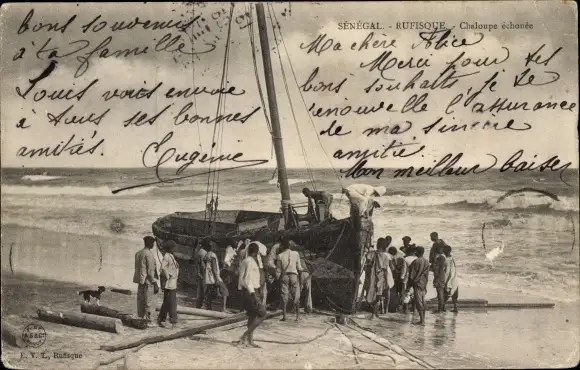 SÉNÉGAL. - RUFISQUE. - Chaloupe échouée
bons souvenirs
à ta famille
Louis vous envoie
à tous ses bonnes
amitiés.
Eugénie
Ma chère Alice
Merci pour tes
bons souhaits, je te
renouvelle l'assurance
de ma sincère
amitié
Mon meilleur baiser
E. V. T., Rufisque